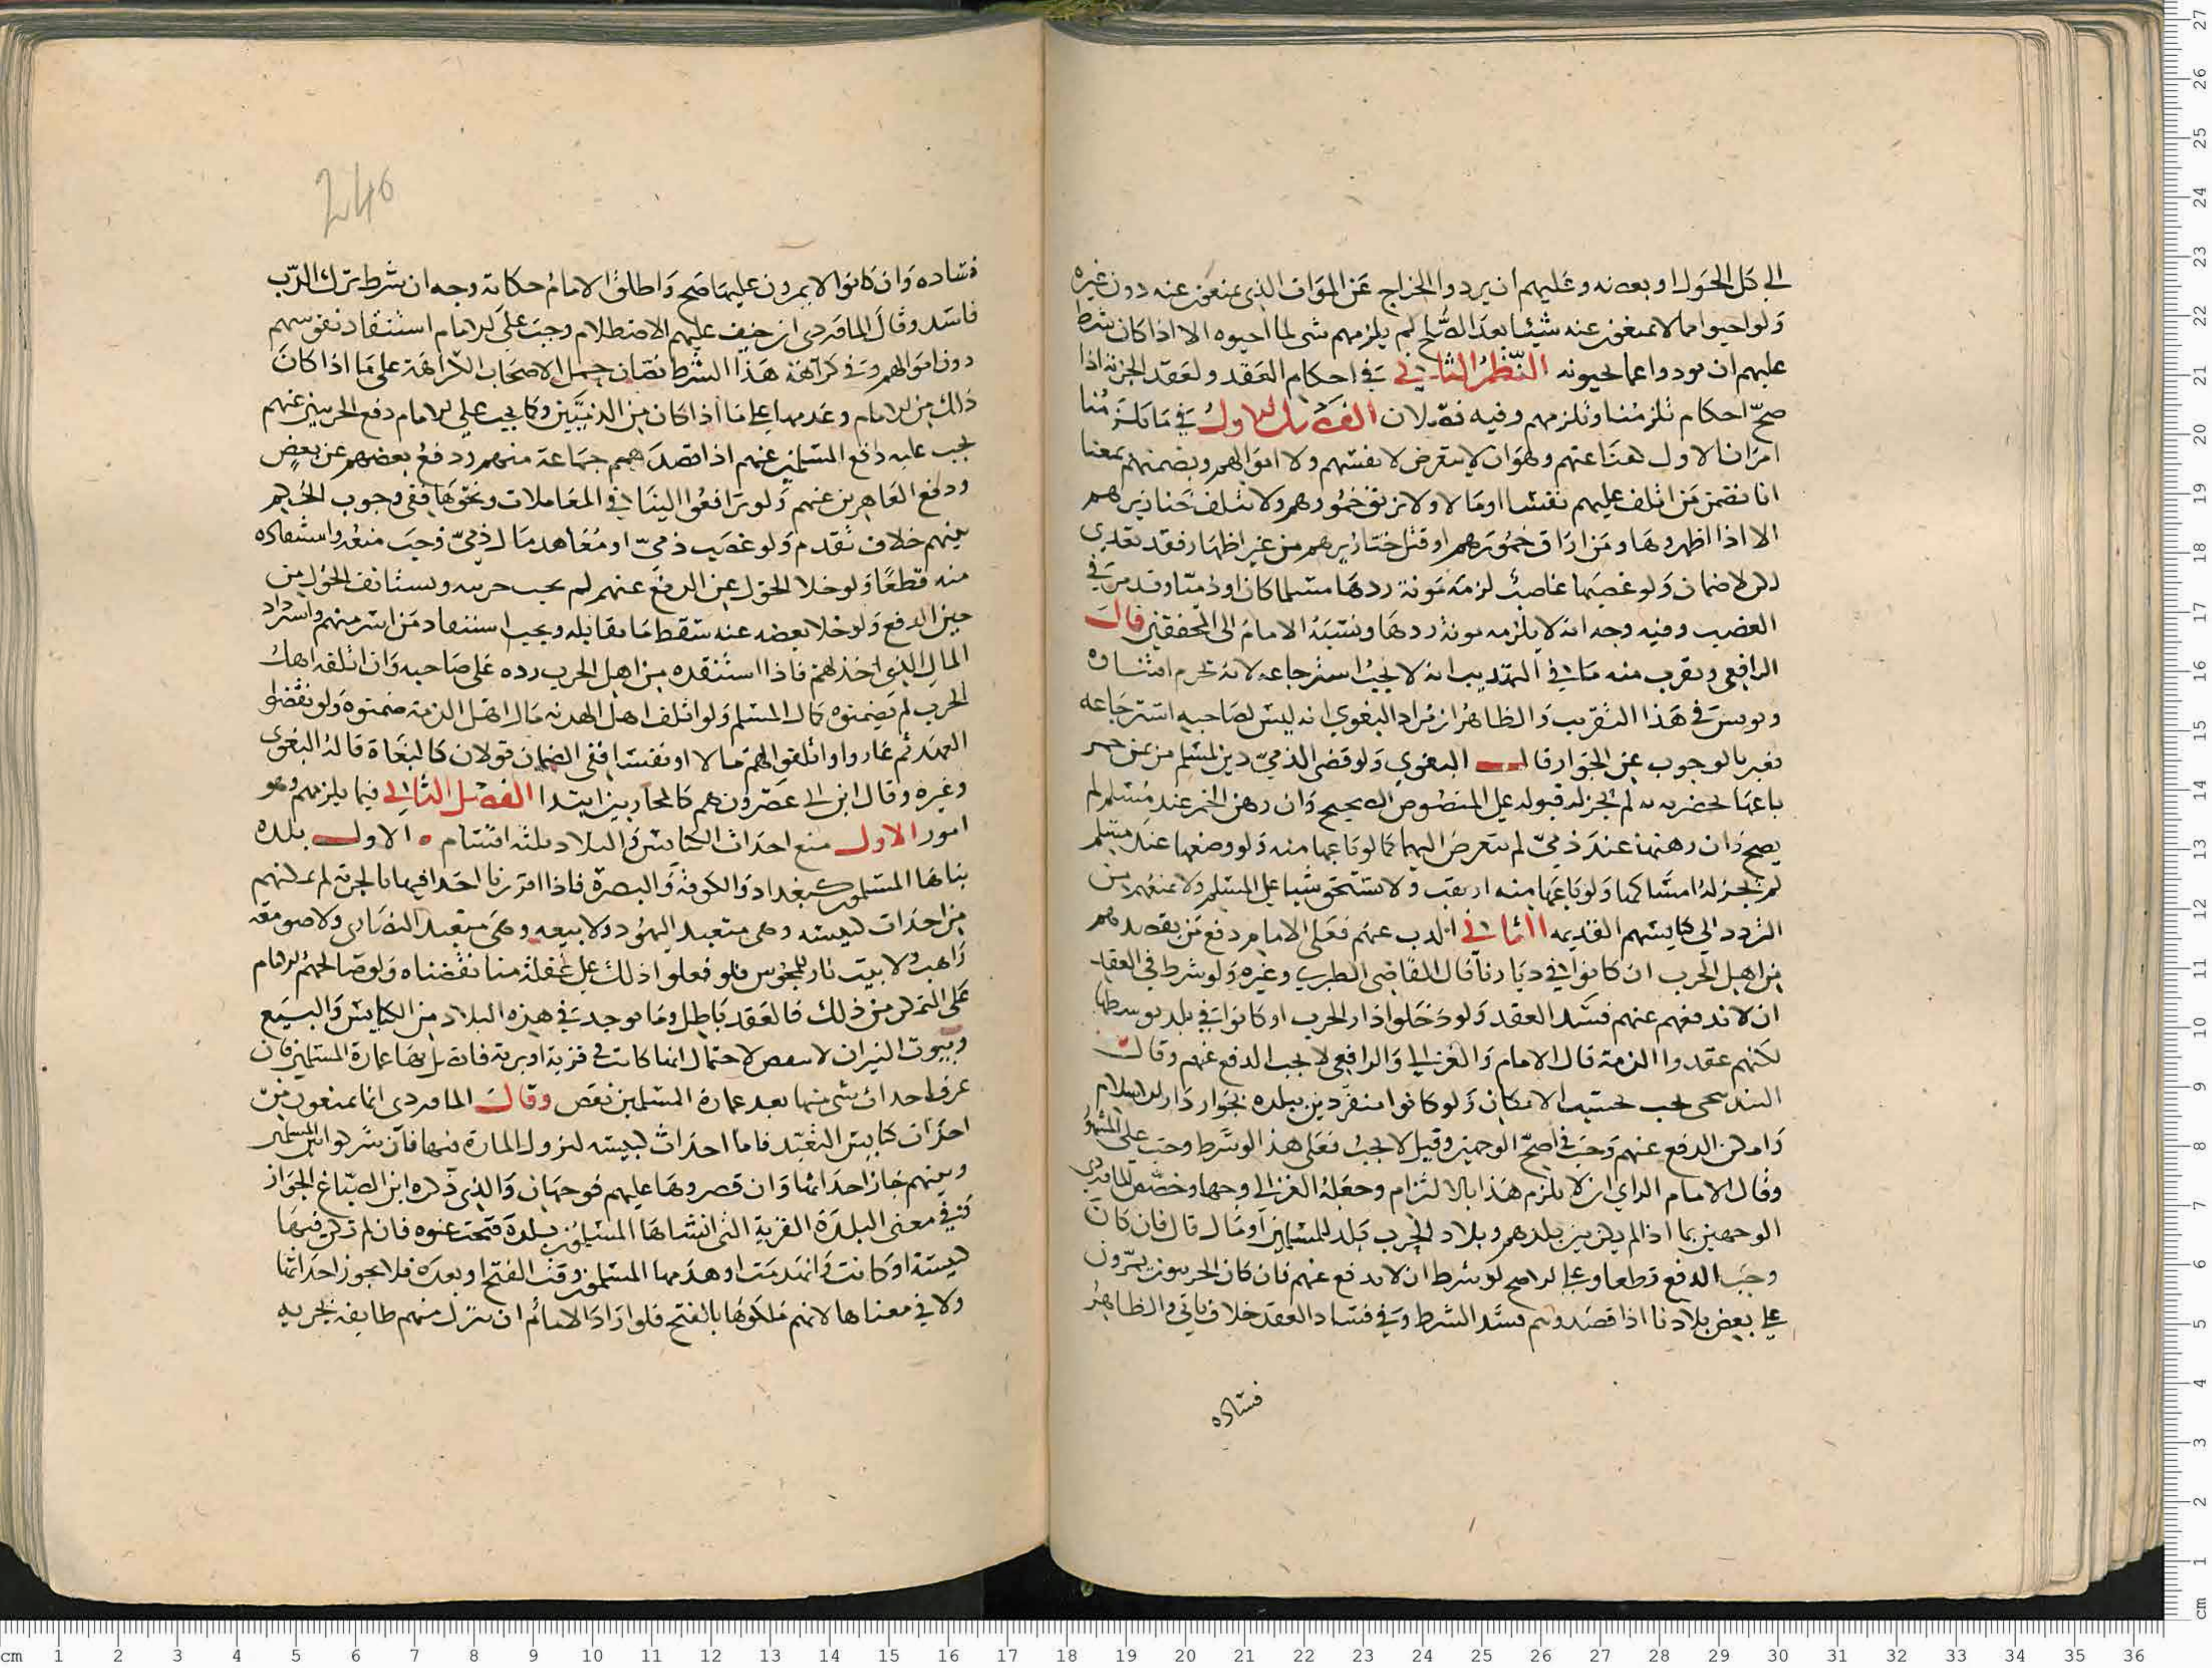 الي كل الحول او بعضه وعليهم ان يردوا الخراج عن الموات الذي يمنعون عنه دون غيره
ولو احيوا مما لا يمنعون عنه شيئا بعد الصلح لم يلزمهم شي لما احيوه الا اذا كان شرط
عليهم ان يودوا عما يحيونه النظر الثاني في احكام العقد ولعقد الجزية اذا
صح احكام تلزمنا وتلزمهم وفيه فصلان الفصل الاول في ما يلزمنا
امران الاول وهو ان لا يتعرض لانفسهم ولا اموالهم ويضمنهم بمعنا
انا نضمن من اتلف عليهم نفسا او مالا ولا نريق خمورهم ولا نتلف خنازيرهم
الا اذا اظهروها ومن اراق خمورهم او قتل خنازيرهم من غير اظهار فقد تعدي
لكن لا ضمان ولو غصبها غاصب لزمه مونة ردها مسلما كان او ذميا وقد مر في
الغصب وفيه وجه انه لا يلزمه مونة ردها ونسبه الامام الى المحققين قال
الرافعي ويقرب منه ما في التهذيب انه لا يجب استرجاعه لانه يحرم اقتناوه
في هذا التقريب والظاهر ان مراد البغوي انه ليس لصاحبه استرجاعه
فعبر بالوجوب عن الجواز قال البغوي ولو قضى الذمي دين لمسلم من ثمن خمر
باعها بحضرته لم يجز له قبوله على المنصوص الصحيح وان رهن الخمر عند مسلم لم
يصح وان رهنها عند ذمي لم نتعرض اليهما كما لو باعها منه ولو وضعها عند مسلم
لم يجز له امساكها ولو باعها منه اريقت ولا يستحق شيا على المسلم ولا نمنعهم من
التردد الى كنايسهم القديمه الثاني الذب عنهم فعلى الامام دفع من يقصدهم
من اهل الحرب ان كانوا في ديارنا قال القاضي الطبري وغيره ولو شرط في العقد
ان لا ندفعهم عنهم فسد العقد ولو دخلوا دار الحرب او كانوا في بلد توسطها
لكنهم عقدوا الذمة قال الامام والغزالي والرافعي لا يجب الدفع عنهم وقال
البندنيجي يجب بحسب الامكان ولو كانوا منفردين ببلده بجوار دار الاسلام
وامكن الدفع عنهم وجب في اصح الوجهين وقيل لا يجب فعلى هذا لو شرط وجب على المشهور
وقال الامام الراي ان لا يلزم هذا بالالتزام وجعله الغزالي وجها وخصص الماوردي
الوجهين بما اذا لم يكن بين بلدهم وبلاد الحرب بلد للمسلمين او مال قال فان كان
وجب الدفع قطعا وعلى الاصح لو شرط ان لا ندفع عنهم فان كان الحربيون يمرون
على بعض بلادنا اذا قصدوهم فسد الشرط وفي فساد العقد خلاف ياتي والظاهر
فساده
246
فساده وان كانوا لا يمرون عليها صح واطلق الامام حكاية وجه ان شرط ترك الذب
فاسد وقال الماوردي ان خيف عليهم الاصطلام وجب على الامام استنقاذ نفوسهم
دون اموالهم وفي كراهة هذا الشرط نصان حمل الاصحاب الكراهة على ما اذا كان
ذلك من الامام وعدمها على ما اذا كان من الذميين وكما يجب على الامام دفع الحربيين عنهم
يجب عليه دفع المسلمين عنهم اذا قصدهم جماعة منهم ودفع بعضهم عن بعض
ودفع عنهم ولو ترافعوا الينا في المعاملات ونحوها ففي وجوب الحكم
بينهم خلاف تقدم ولو غصب ذمي او معاهد مال ذمي وجب منعه واستنقاذه
منه قطعا ولو خلا الحول عن الدفع عنهم لم يجب جزيته ويستانف الحول من
حين الدفع ولو خلا بعضه عنه سقط ما يقابله ويجب استنقاذ من اسر منهم واسترداد
المال الذي اخذ لهم فاذا استنقده من اهل الحرب رده على صاحبه وان اتلفه اهل
الحرب لم يضمنوه كمال المسلم ولو اتلف اهل الهدنه مال اهل الذمة ضمنوه ولو نقضوا
العهد ثم عادوا واتلفوا لهم مالا او نفسا ففي الضمان قولان كالبغاة قاله البغوي
وغيره وقال ابن ابي عصرون هم كالمحاربين ابتدا الفصل الثاني فيما يلزمهم وهو
امور الاول منع احداث الكنايس والبلاد ثلثه اقسام الاول بلده
بناها المسلمون كبغداد والكوفة والبصرة فاذا اقررنا احدا فيها بالجزية لم نمكنهم
من احداث كنيسه وهي متعبد اليهود ولا بيعه وهي متعبد النصارى ولا صومعة
راهب ولا بيت نار للمجوس فلو فعلوا ذلك على غفلة منا نقضناه ولو صالحهم الامام
على التمكن من ذلك فالعقد باطل وما يوجد في هذه البلاد من الكنايس والبيع
وبيوت النيران لا ينقض لاحتمال انها كانت في قرية او برية فاتصل بها عمارة المسلمين فان
عرف احداث شي منها بعد عمارة المسلمين نقض وقال الماوردي انما يمنعون من
احداث كنايس التعبد فاما احداث كنيسه لنزول المارة فيها فان شركوا بين المسلمين
وبينهم جاز احداثها وان قصروها عليهم فوجهان والذي ذكره ابن الصباغ الجواز
وفي معنى البلدة القرية التي انشاها المسلمون بلدة فتحت عنوه فان لم تكن فيها
كنيسة او كانت وانهدمت او هدمها المسلمون وقت الفتح او بعده فلا يجوز احداثها
ولا في معناها لانهم ملكوها بالفتح فلو اراد الامام ان ينزل منهم طايفه بجزيه